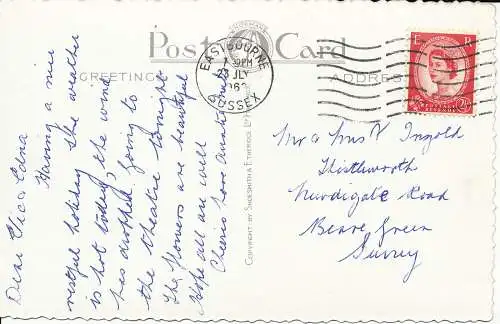 Post Card
GREETINGS
ADDRESS
EASTBOURNE
SUSSEX
JLY
E R
POSTAGE
REVENUE
2½D
COPYRIGHT BY SHOESMITH & ETHERIDGE LTD
Dear Elic & Edna
Having a nice
restful holiday the weather
is hot today, the wind
has dropped. Going to
the theatre tonight
The flowers are beautiful
Hope all are well
Cheerio love
Mr & Mrs Ingold
Thistleworth
Newdigate Road
Beare Green
Surrey